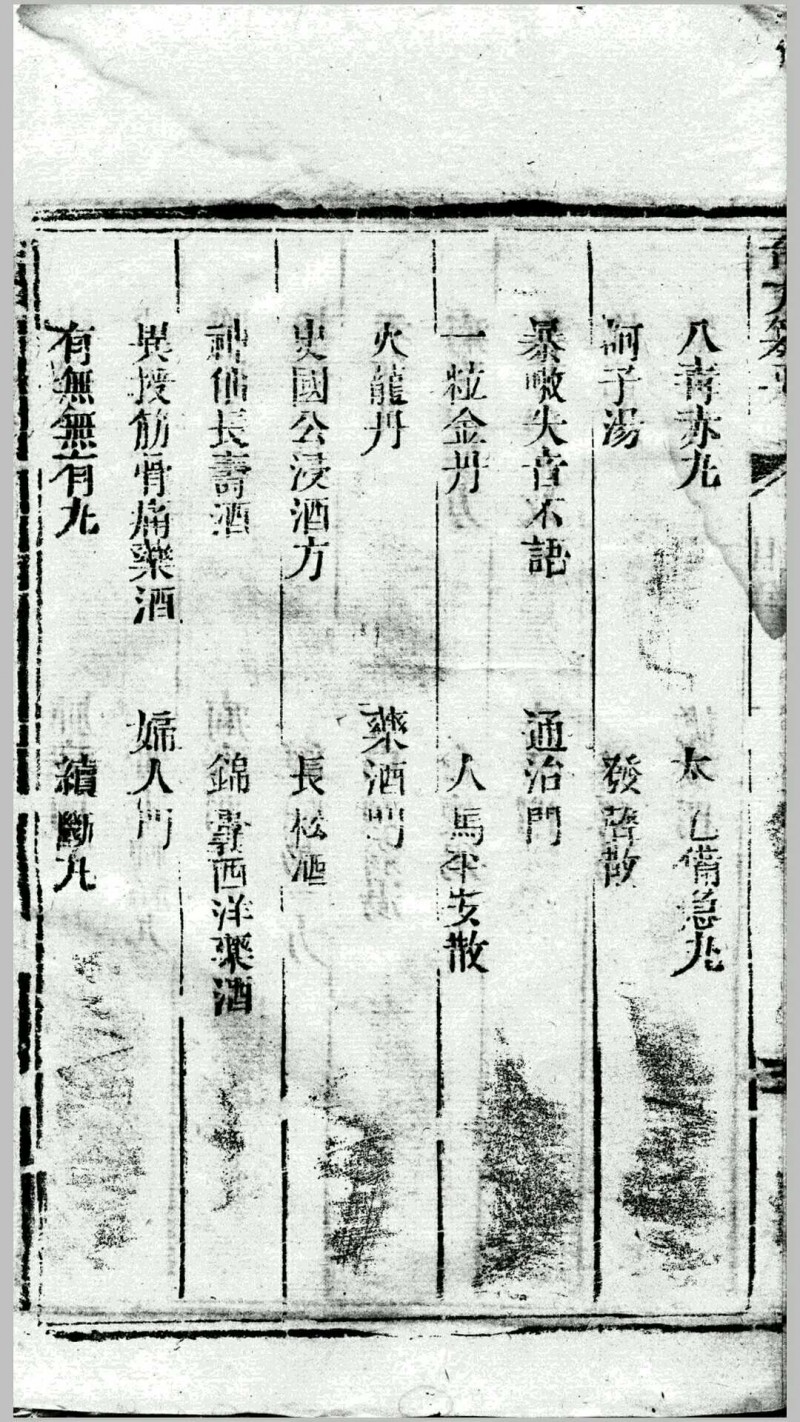 八毒赤丸　太乙備急丸
訶子湯　發聲散
暴嗽失音不語　通治門
一粒金丹　人馬平安散
火龍丹　藥酒門
史國公浸酒方　長松酒
神仙長壽酒　錦囊西洋藥酒
異授筋骨痛藥酒　婦人門
有無無有丸　續斷丸